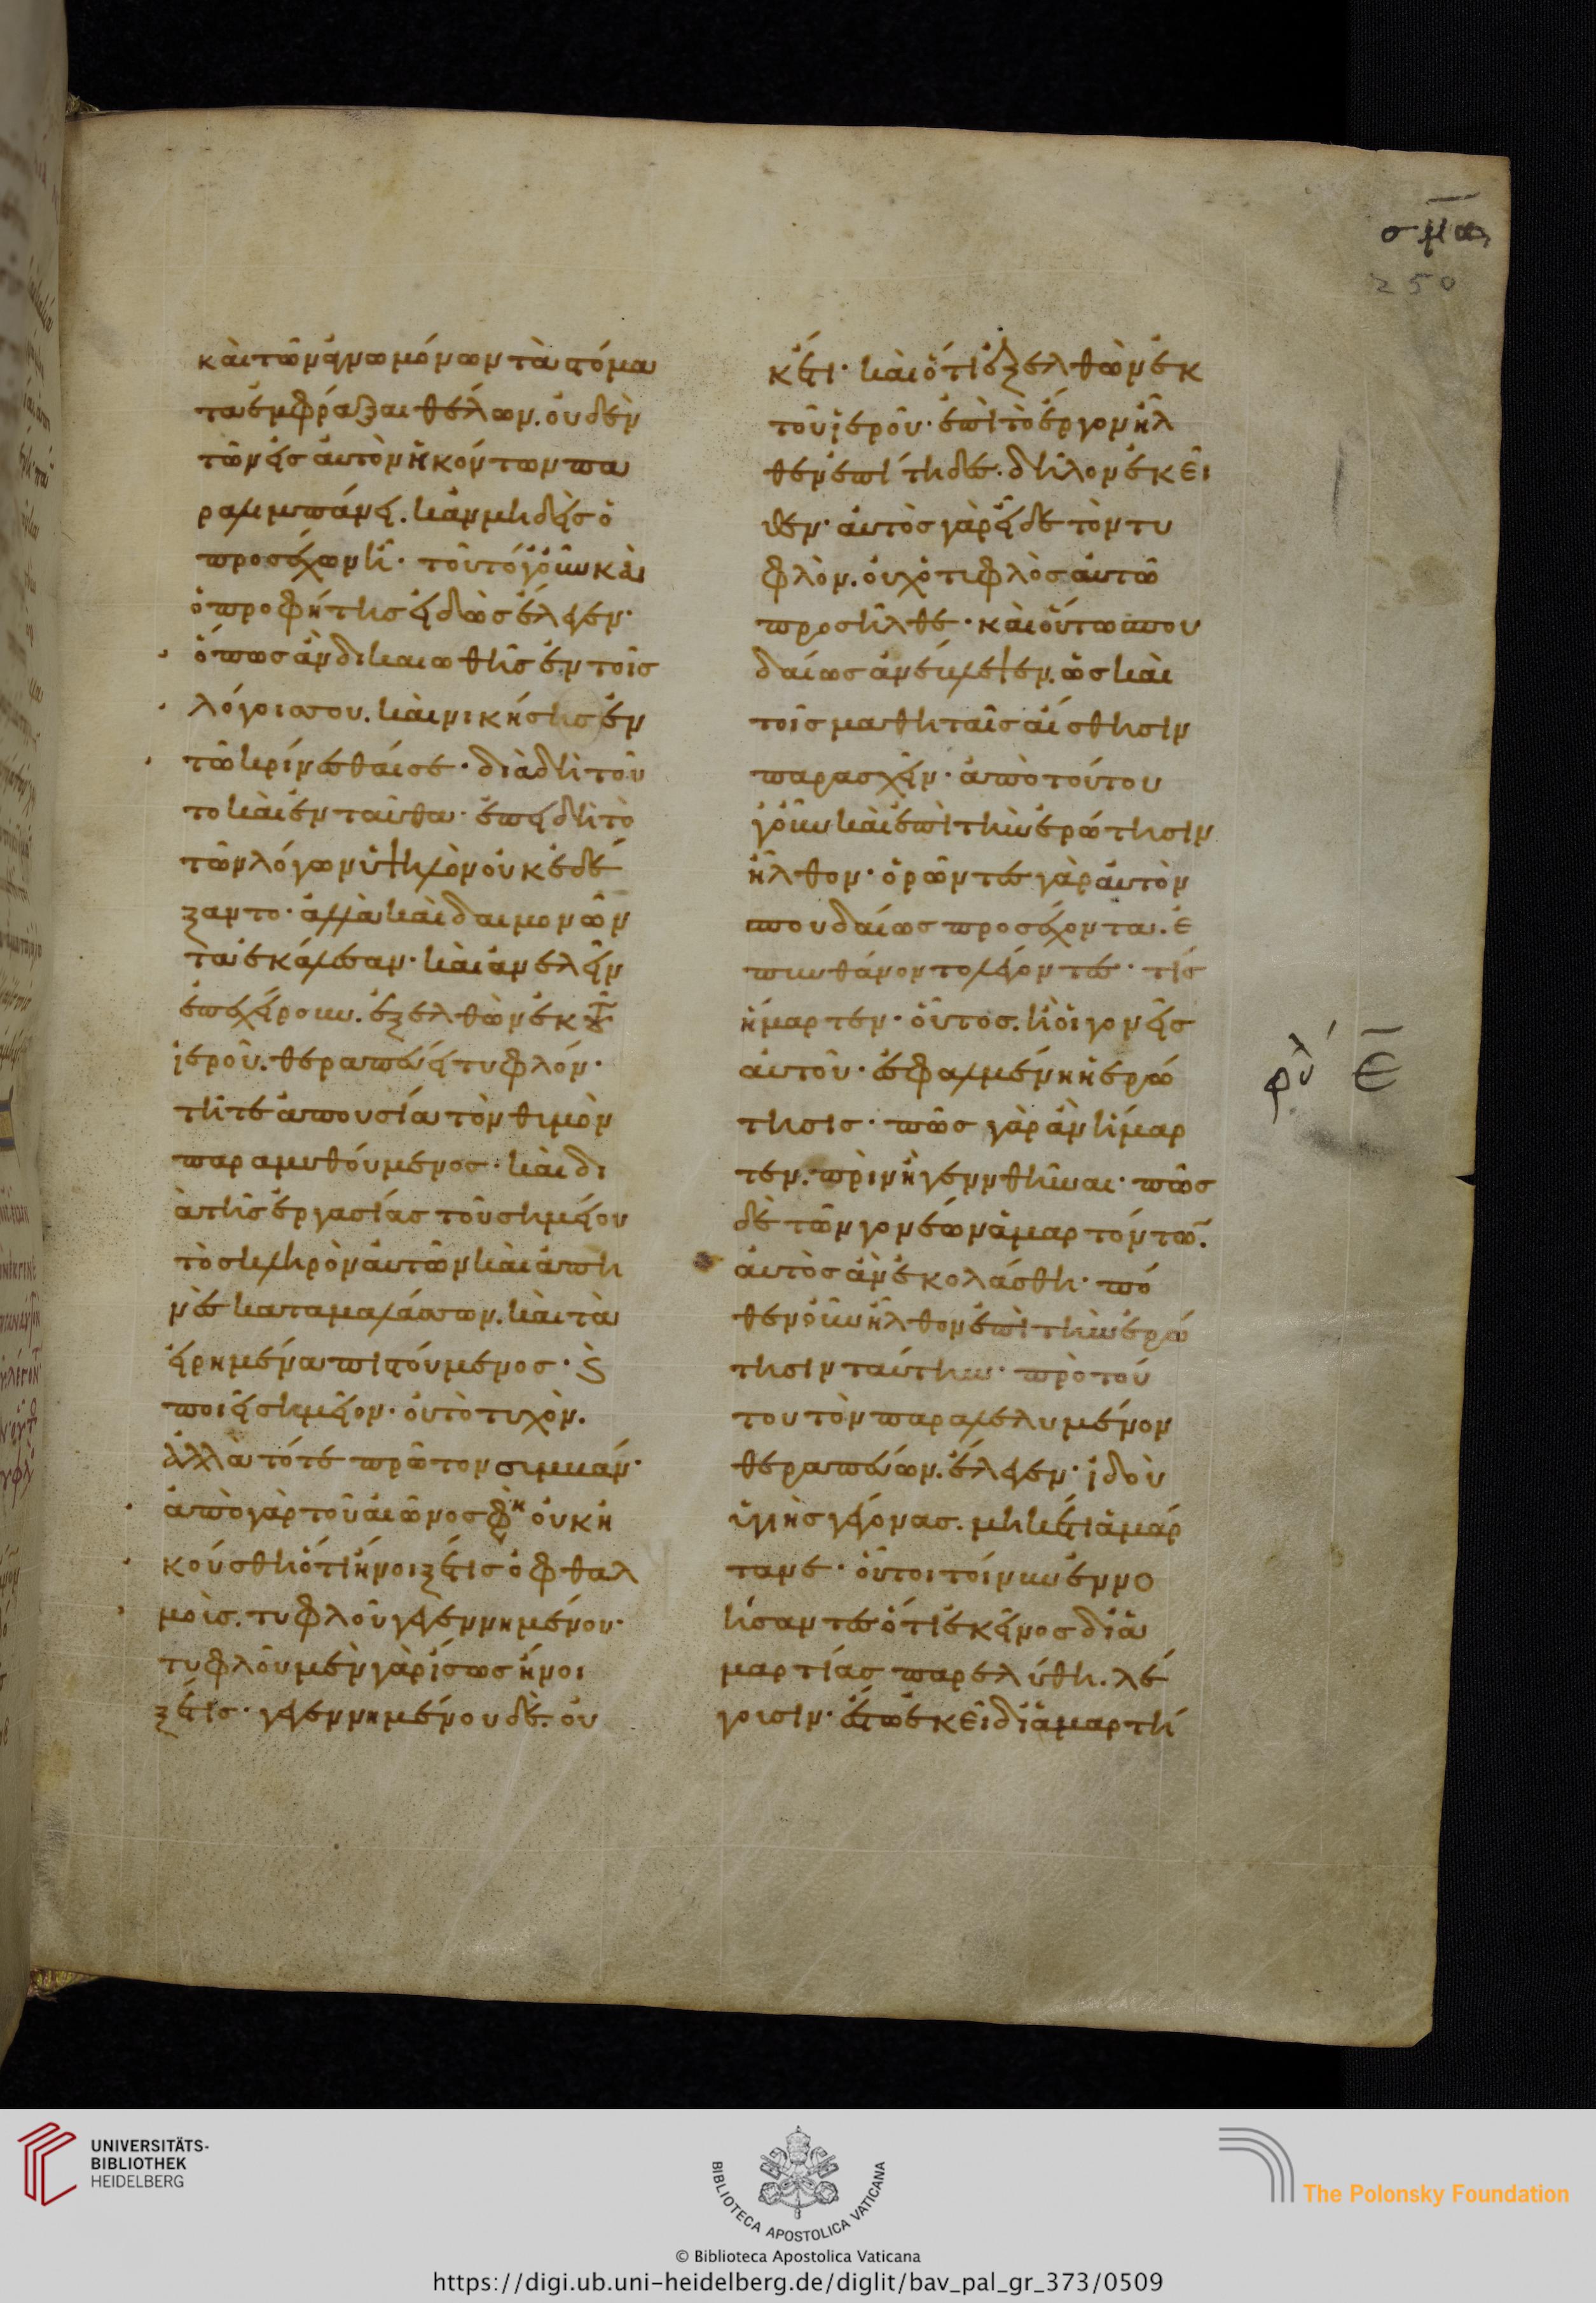 σμα
250
καὶ τῶν ἀγνωμόνων τὰ στόμα
τα ἐμφράξαι θέλων. οὐδὲν
τῶν εἰς αὐτὸν ἡκόντων πα
ραλιμπάνει. κἂν μηδεὶς ὁ
προσέχων ἦ· τοῦτο γοῦν καὶ
ὁ προφήτης εἰδὼς ἔλεγεν·
ὅπως ἂν δικαιωθῆς ἐν τοῖς
λόγοις σου. καὶ νικήσης ἐν
τῶ κρίνεσθαί σε· διὰ δὴ τοῦ
το καὶ ἐνταῦθα· ἐπειδὴ τὸ
τῶν λόγων ὑψηλὸν οὐκ ἐδέ
ξαντο· ἀλλὰ καὶ δαιμονῶν
τα ἐκάλεσαν· καὶ ἀνελεῖν
ἐπεχείρουν. ἐξελθὼν ἐκ τοῦ
ἱεροῦ. θεραπεύει τυφλόν·
τῆ τε ἀπουσία τὸν θυμὸν
παραμυθούμενος· καὶ δι
ὰ τῆς ἐργασίας τοῦ σημείου
τὸ σκληρὸν αὐτῶν καὶ ἀπη
νὲς καταμαλάσσων. καὶ τὰ
εἰρημένα πιστούμενος· καὶ
ποιεῖ σημεῖον· οὐ τὸ τυχὸν.
ἀλλὰ τότε πρῶτον συμβάν·
ἀπὸ γὰρ τοῦ αἰῶνος φη οὐκ ἠ
κούσθη ὅτι ἤνοιξέ τις ὀφθαλ
μοὶς. τυφλοῦ γεγεννημένου·
τυφλοῦ μὲν γὰρ ἴσως ἤνοι
ξέ τις· γεγεννημένου δὲ. οὐ
κέτι· καὶ ὅτι ἐξελθὼν ἐκ
τοῦ ἱεροῦ· ἐπὶ τὸ ἔργον ἦλ
θεν ἐπίτηδες. δῆλον ἐκεῖ
θεν· αὐτὸς γὰρ εἶδε τὸν τυ
φλὸν. οὐχ ὁ τυφλὸς αὐτῶ
προσῆλθε· καὶ οὕτω σπου
δαίως ἀνέβλεψεν. ὡς καὶ
τοῖς μαθηταῖς αἴσθησιν
παρασχεῖν· ἀπὸ τούτου
γοῦν καὶ ἐπὶ τὴν ἐρώτησιν
ἦλθον· ὁρῶντες γὰρ αὐτὸν
σπουδαίως προσέχοντα. ἐ
πυνθάνοντο λέγοντες· τίς
ἥμαρτεν· οὗτος. ἢ οἱ γονεῖς
αὐτοῦ· ἐσφαλμένη ἡ ἐρώ
τησις· πῶς γὰρ ἂν ἥμαρ
τεν. πρὶν ἢ γεννηθῆναι· πῶς
δὲ τῶν γονέων ἁμαρτόντων.
αὐτὸς ἂν ἐκολάσθη· πό
θεν οὖν ἦλθον ἐπὶ τὴν ἐρώ
τησιν ταύτην· πρὸ τού
του τὸν παραλελυμένον
θεραπεύων. ἔλεγεν· ἰδοὺ
ὑγιὴς γέγονας. μηκέτι ἁμάρ
τανε· οὗτοι τοίνυν ἐννο
ήσαντες ὅτι ἐκεῖνος διἁ
μαρτίας παρελύθη. λέ
γουσιν· ἔστω ἐκεῖ διἁμαρτί
φυλ Ε
UNIVERSITÄTS-
BIBLIOTHEK
HEIDELBERG
BIBLIOTECA APOSTOLICA VATICANA
The Polonsky Foundation
© Biblioteca Apostolica Vaticana
https://digi.ub.uni-heidelberg.de/diglit/bav_pal_gr_373/0509